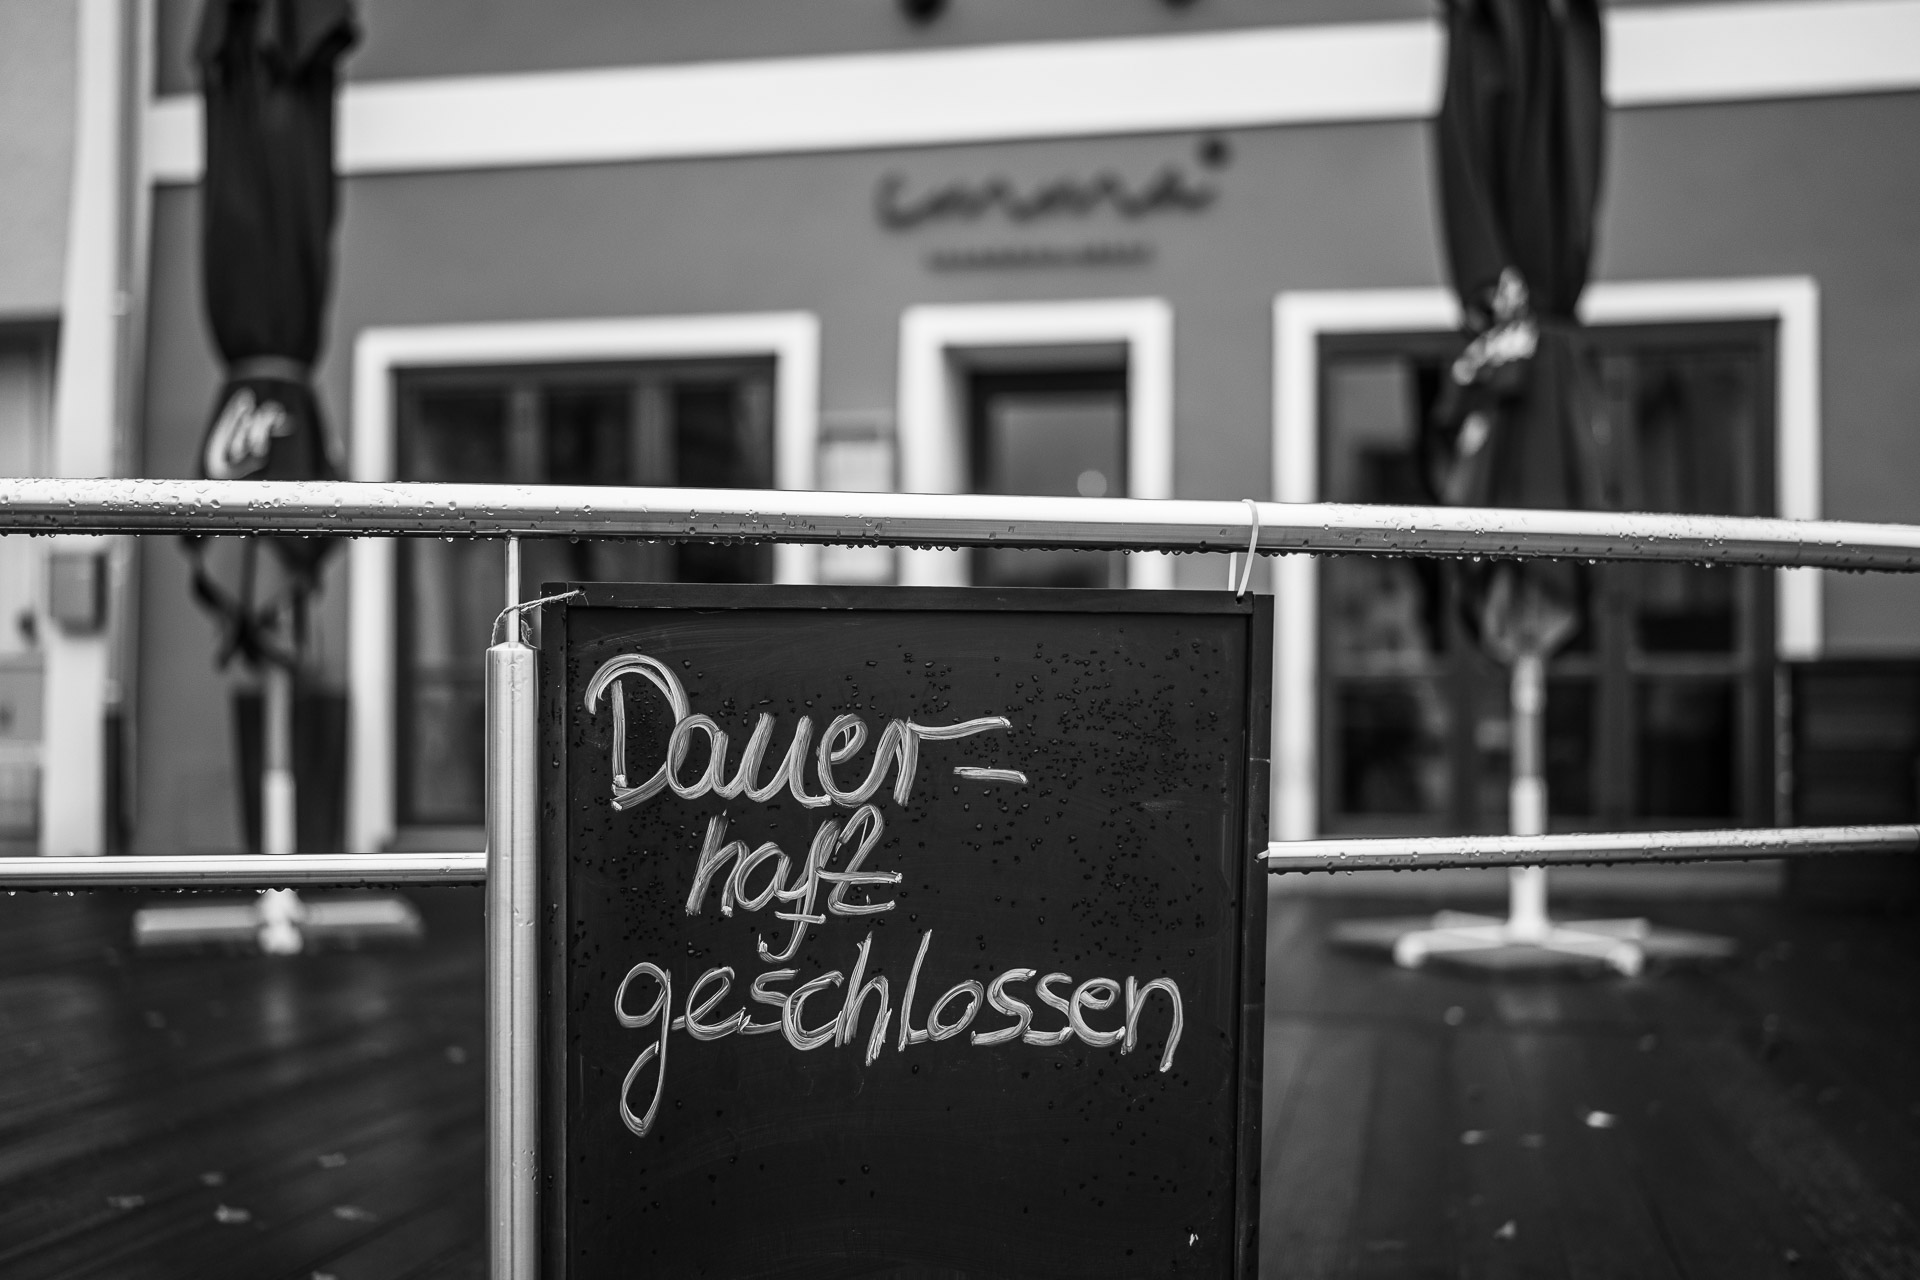 Dauer-
haft
geschlossen